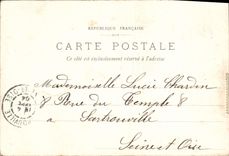 RÉPUBLIQUE FRANÇAISE
CARTE POSTALE
Ce côté est exclusivement réservé à l'adresse
Mademoiselle Lucie Chardin
8 Rue du Temple 8
a Sartrouville
Seine et Oise